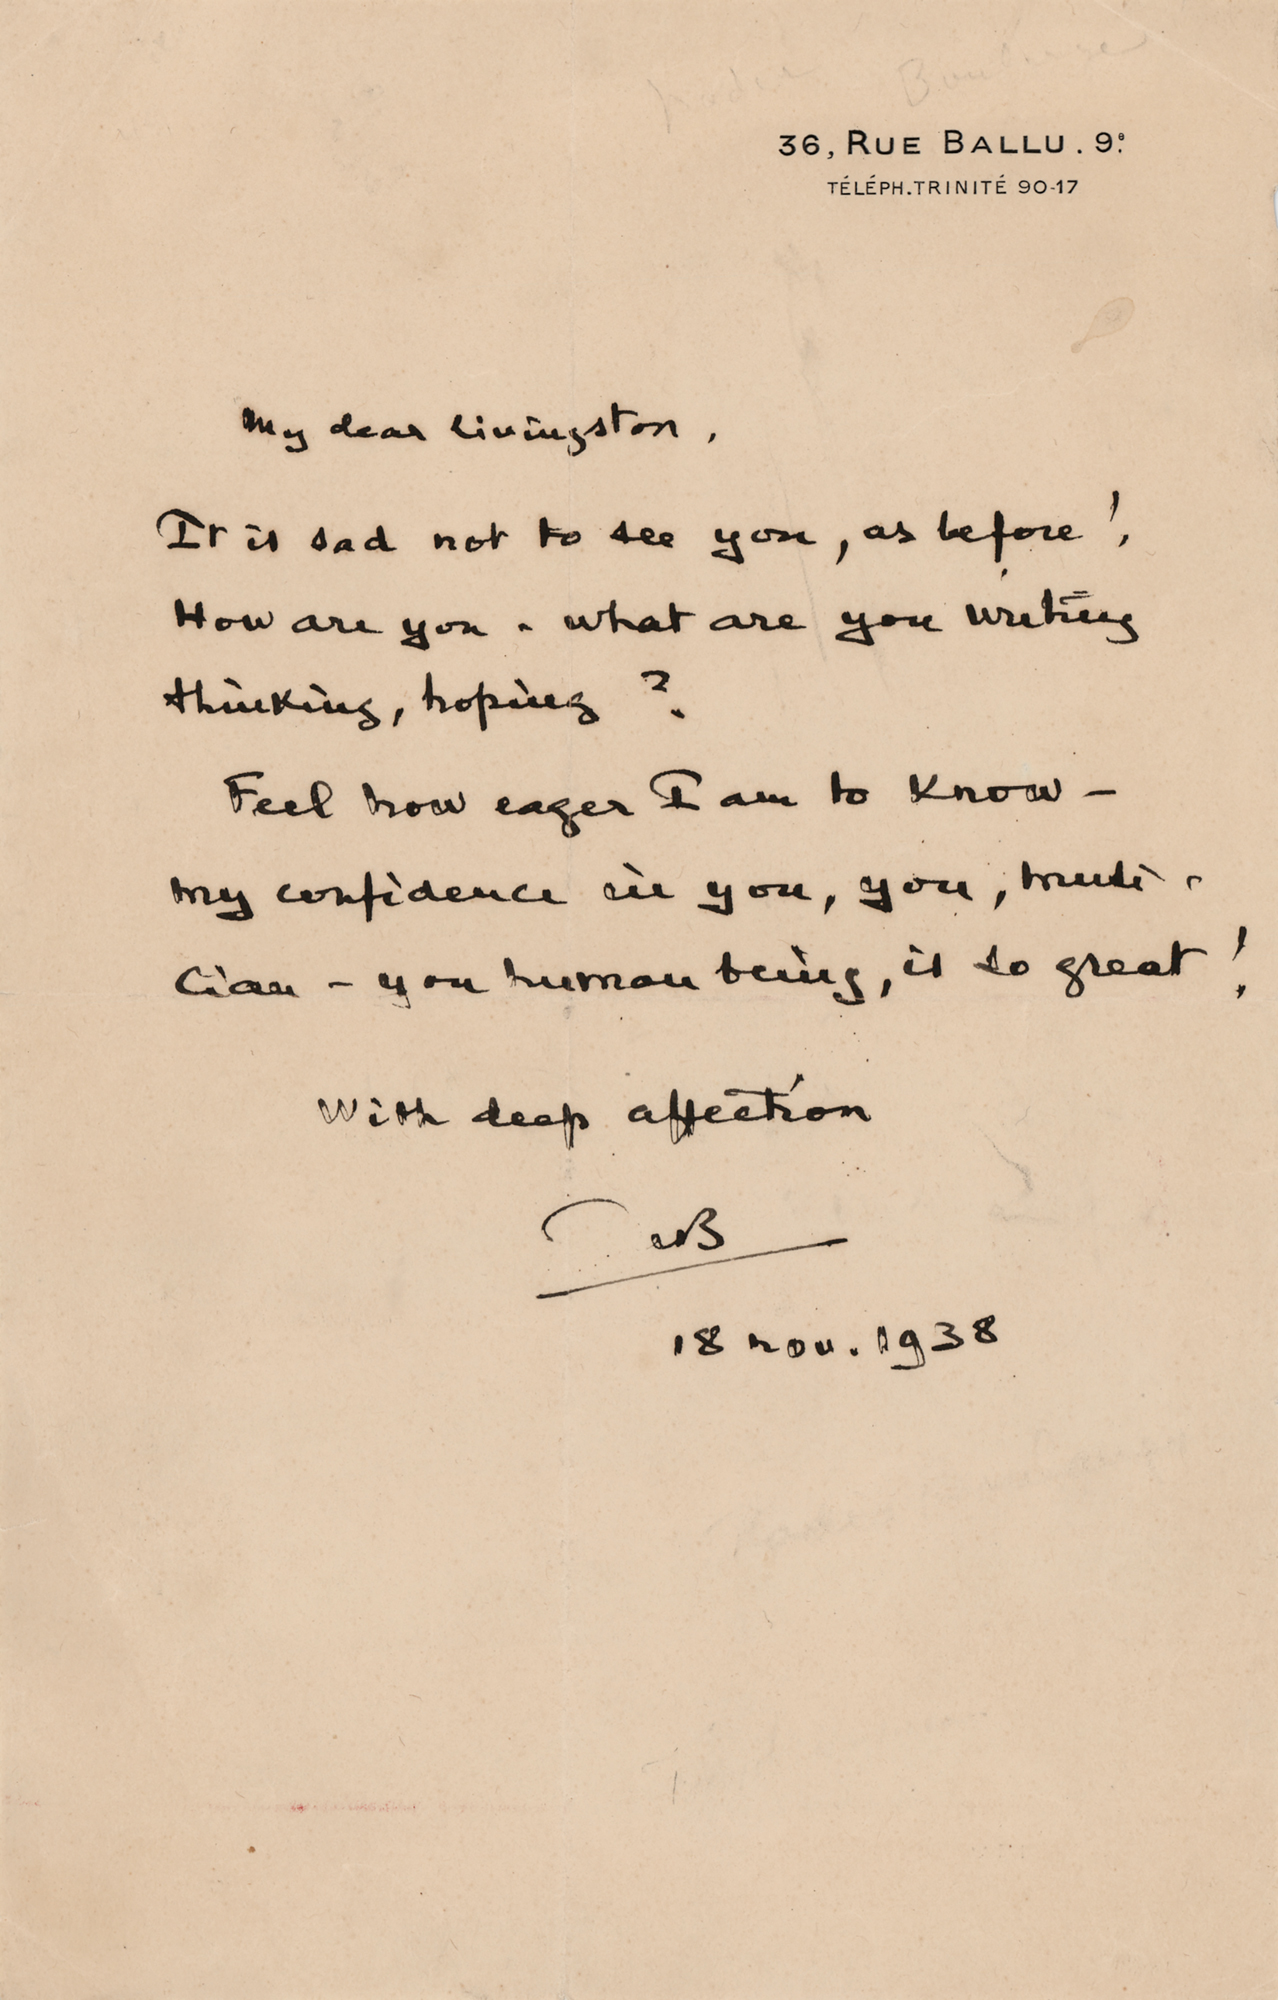 36, RUE BALLU. 9e
TÉLÉPH. TRINITÉ 90-17
My dear Livingston,
It is sad not to see you, as before!
How are you - what are you writing
thinking, hoping ?
Feel how eager I am to know -
my confidence in you, you, musi-
cian - you human being, is so great!
With deep affection
NB
18 nov. 1938